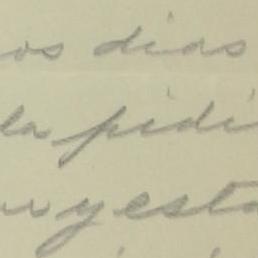 os dias
la pidi
y esta